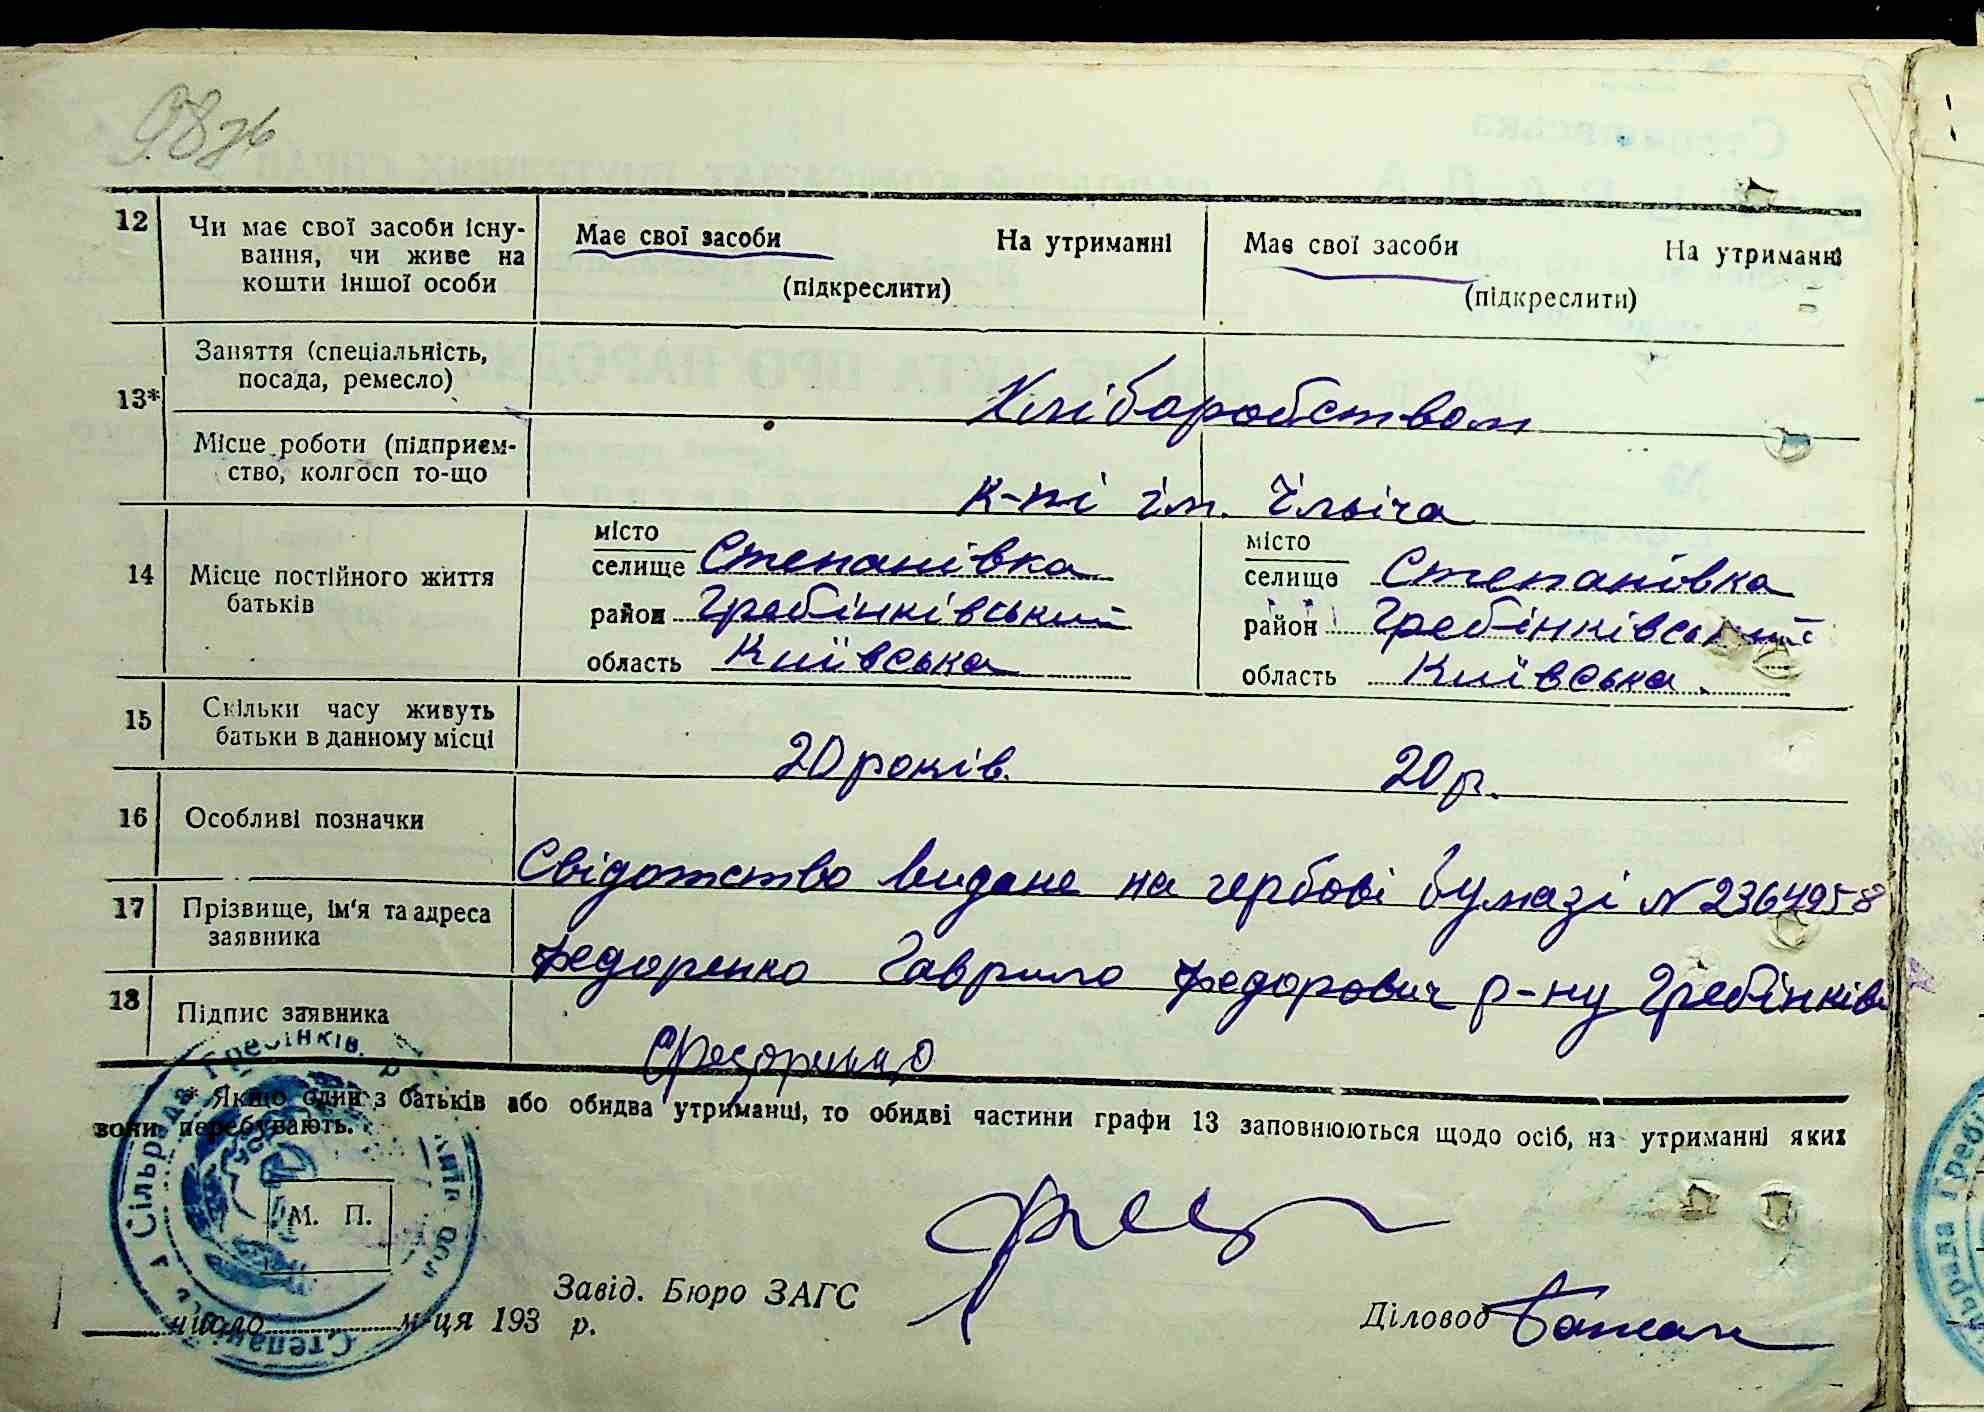 98зв
12 Чи має свої засоби існу-
вання, чи живе на
кошти іншої особи
Має свої засоби На утриманні
(підкреслити)
Має свої засоби На утриманні
(підкреслити)
13*
Заняття (спеціальність,
посада, ремесло)
Хліборобством
Місце роботи (підприєм-
ство, колгосп то-що
к-пі ім. Ілліча
14 Місце постійного життя
батьків
місто
селище Степанівка
район Гребінківський
область Київська
місто
селище Степанівка
район Гребінківський
область Київська.
15 Скільки часу живуть
батьки в данному місці
20 років. 20 р.
16 Особливі позначки
Свідотство видане на гербові бумазі № 2364958
17 Прізвище, ім'я та адреса
заявника
Федоренко Гаврило Федорович р-ну Гребінків
18 Підпис заявника
* Якщо один з батьків або обидва утриманці, то обидві частини графи 13 заповнюються щодо осіб, на утриманні яких
вони перебувають.
Сільрада Гребінків. р
Київ обл
М. П.
число м-ця 193 р.
Завід. Бюро ЗАГС
Діловод Бажан